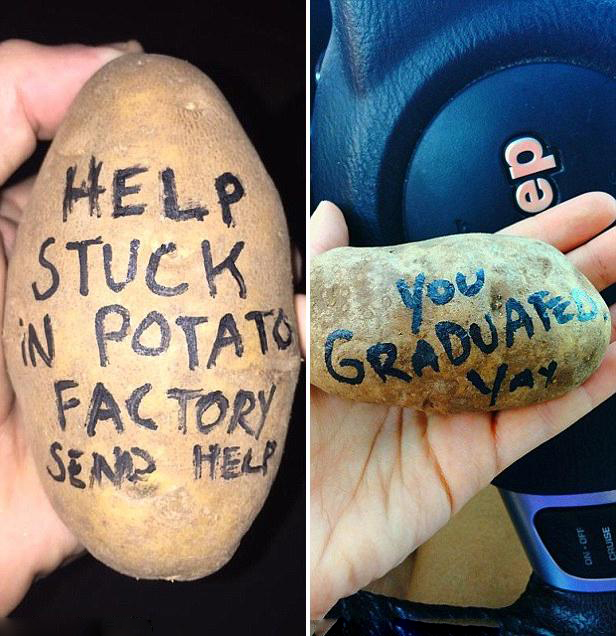 HELP
STUCK
iN POTATO
FACTORY
SEND HELP
YOU
GRADUATED
YAY
ep
ON • OFF
CRUISE